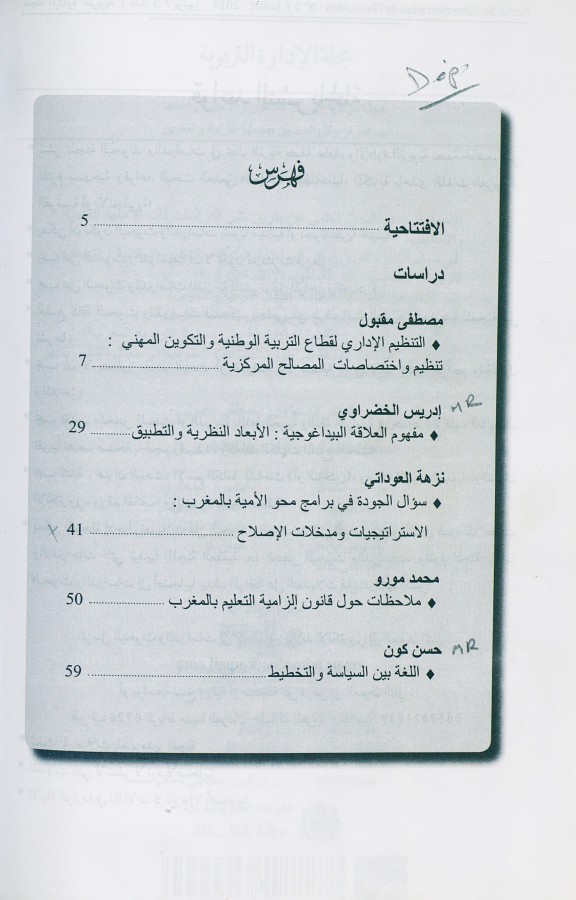 Dép
فهرس
الافتتاحية ........ 5
دراسات
مصطفى مقبول
♦ التنظيم الإداري لقطاع التربية الوطنية والتكوين المهني :
تنظيم واختصاصات المصالح المركزية ........ 7
إدريس الخضراوي MR
♦ مفهوم العلاقة البيداغوجية : الأبعاد النظرية والتطبيق ........ 29
نزهة العوداتي
♦ سؤال الجودة في برامج محو الأمية بالمغرب :
الاستراتيجيات ومدخلات الإصلاح ........ 41
محمد مورو
♦ ملاحظات حول قانون إلزامية التعليم بالمغرب ........ 50
حسن كون MR
♦ اللغة بين السياسة والتخطيط ........ 59